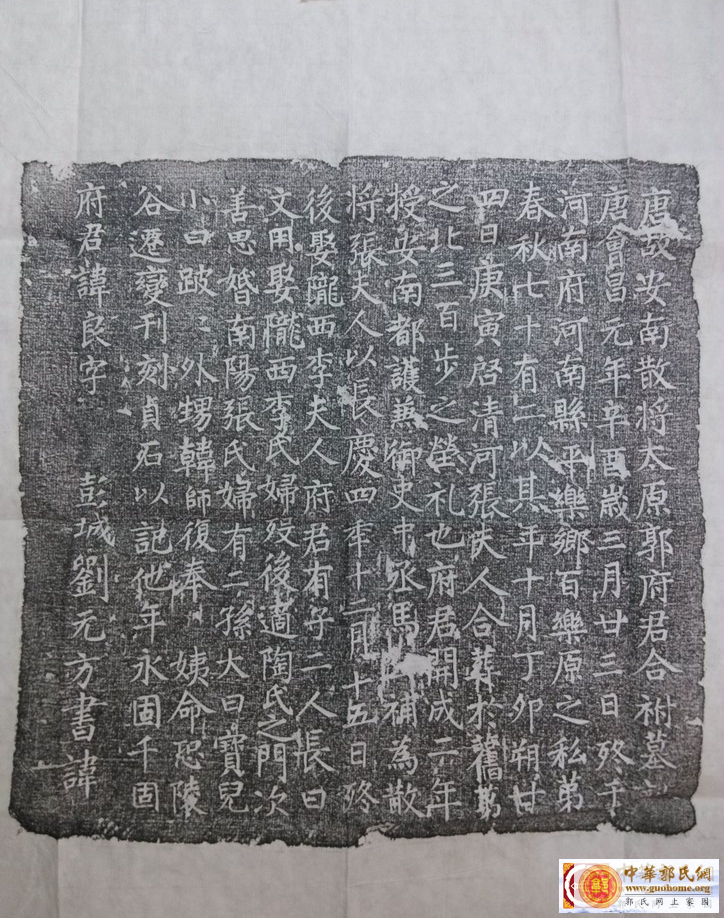 唐故安南散将太原郭府君合祔墓
唐會昌元年辛酉歲三月廿三日歿于
河南府河南縣平樂鄉百樂原之私弟
春秋七十有二以其年十月丁卯朔廿
四日庚寅启清河張夫人合葬於舊
之北三百步之塋礼也府君開成二年
授安南都護兼御史中丞馬 補為散
将張夫人以長慶四年十二月十五日歿
後娶隴西李夫人府君有子二人長曰
文用娶隴西李氏婦歿後適陶氏之門次
善思婚南陽張氏婦有二孫大曰寶兒
小曰跛〻外甥韓師復奉 姨命恐陵
谷遷變刊刻貞石以記他年永固千固
府君諱良字 彭城劉元方書諱
中華郭氏網
www.guohome.org
郭氏网上家园